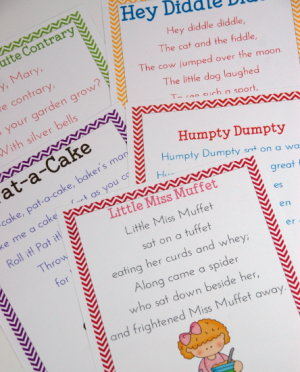 uite Contrary
y, Mary,
te contrary,
your garden grow?
With silver bells
Hey Diddle
Hey diddle diddle,
The cat and the fiddle,
The cow jumped over the moon.
The little dog laughed
such a sport,
Humpty Dumpty
Humpty Dumpty sat on a wa
great
es
en
er
at-a-Cake
cake, pat-a-cake, baker's man
ke me a cake as you ca
Roll it! Pat it!
Throw
for
Little Miss Muffet
Little Miss Muffet
sat on a tuffet
eating her curds and whey;
Along came a spider
who sat down beside her,
and frightened Miss Muffet away.